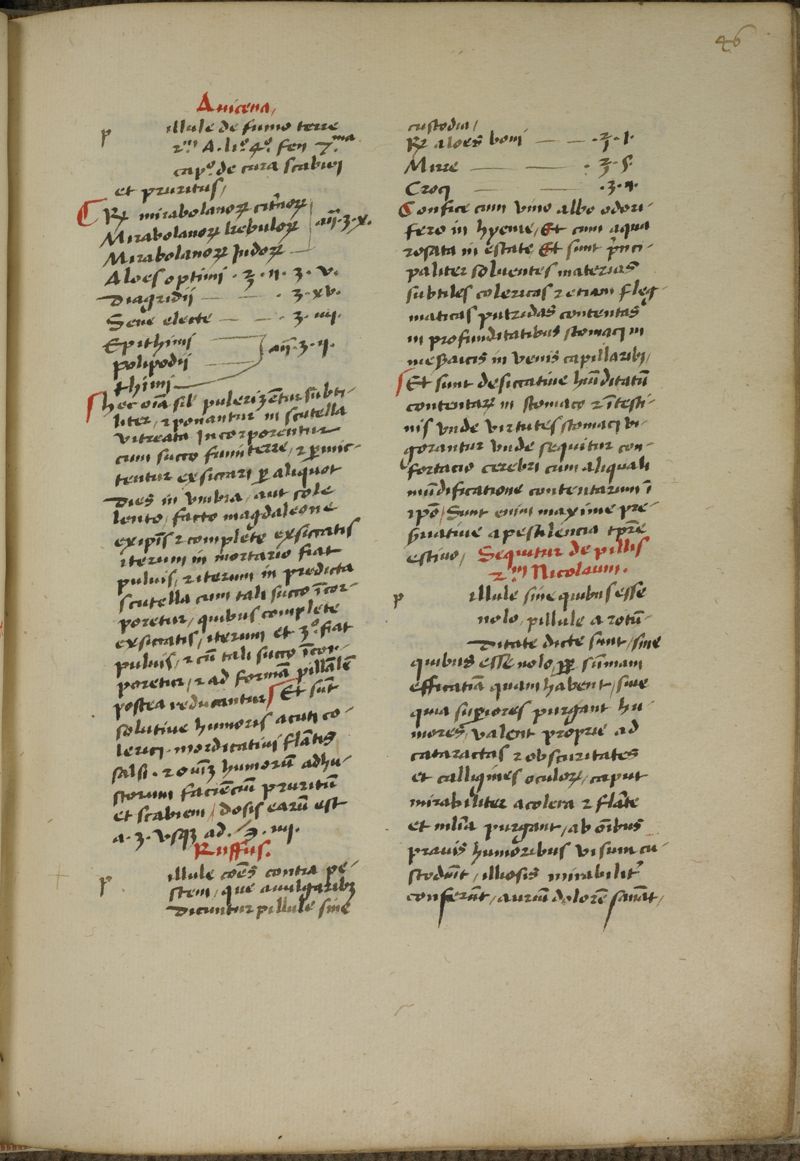 46
Auicena,
p illule de fumo terre
2m A. li.º 4.º fen 7.ma
cap.º de cura scabiei
et pruritus,
R mirabolanoꝝ citrinoꝝ
Mirabolanoꝝ kebuloꝝ añ.ʒ.x.
Mirabolanoꝝ Jndoꝝ
Aloes optimi . ʒ . ii . ʒ . v.
Diagridii — — ʒ . xv.
Sene electe — — ʒ . iiij.
Epithimi
polipodii añ.ʒ.ii.
thimi
hec oĩa sil' pulerizẽtur subti-
liter, ⁊ ponantur in scutella
vitreata Jncorporentur
cum succo fumiterre, ⁊ ꝑmic-
tentur exsiccari ꝑ aliquot
Dies in vmbra, aut sole
lento, facto magdaleone
exip̃is ⁊ complete exsiccatis
iterum in mortario fiat
puluis, ⁊ iterum in predicta
scutella cum tali succo ĩcor-
poretur, quibus complete
exsiccatis, iterum et 3.º fiat
puluis, ⁊ cũ tali succo ĩcor-
poretur, ⁊ ad formã pillãlẽ
postea reducantur Et sunt
solutiue humoris acuti co-
lerici . mordicatiui flãtis
salsi . ⁊ oviũ humorũ adhu-
storum faciẽciũ pruritũ
et scabiem, dosis earũ est
a . ʒ . vsqꝫ ad . ℈ . iiij.
Ruffus.
p illule coẽs contra pe-
stem, que auulgaribꝫ
Dicuntur pillule sine
custodia,
R aloes boni — — . ʒ . i.
Mirre — — . ʒ . s.
Croci — — . ʒ . ii.
Confice cum vino albo odori-
fero in hyeme, Et cum aqua
rosata in estate Et sunt p̃nci-
paliter soluentes materias
subtiles colericas ⁊ etiam fleg-
maticas putridas contentas
in profunditatibus stomaci in
meßaicis in venis capillaribꝫ
Et sunt desiccatiue hũiditatũ
contentaꝝ in stomaco ⁊ ĩtesti-
nis vnde virtutes stomaci vi-
gorantur vnde sequitur con-
fortacio cerebri cum aliquali
mũdificatione contentarum ĩ
ip̃o, Sunt enim maxime pre-
ẜuatiue apestilencia tp̃re
estiuo, Sequitur de pillis
2m Nicolaum.
p illule sine quibus esse
nolo, pillule a rotũ-
Ditate dicte sunt, sine
quibus esse nolo ꝓꝑ sũmam
efficatiã quam habent, siue
quia suꝑiores purgant hu-
mores, valent proprie ad
cataractas ⁊ obscuritates
et caligines oculoꝝ, caput
mirabiliter acolera ⁊ flãte
et mlĩa purgant, ab oĩbus
prauis humoribus visum cu-
stodiũt, illiosis mirabilitꝰ
conferũt, aurium dolorẽ sanãt,